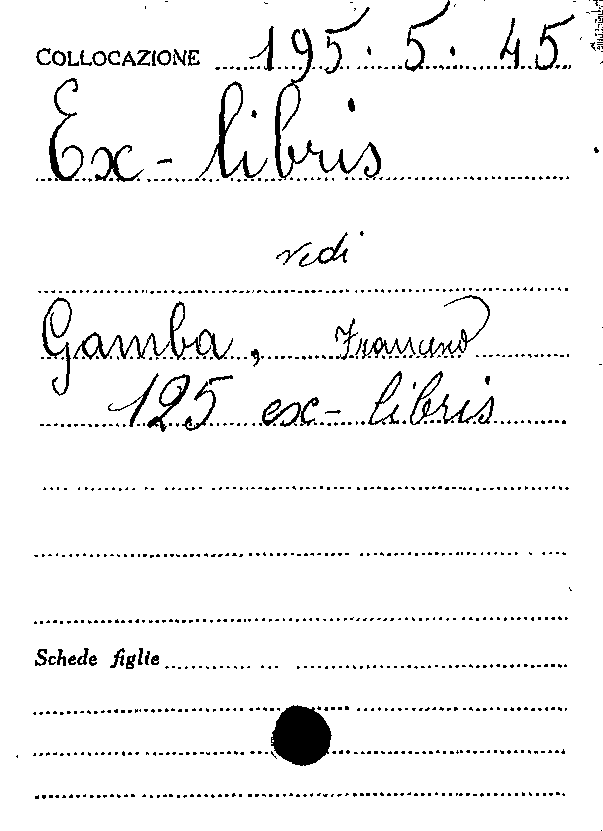 COLLOCAZIONE 195. 5. 45
Ex-libris
vedi
Gamba, Francesco
125 ex-libris
Schede figlie